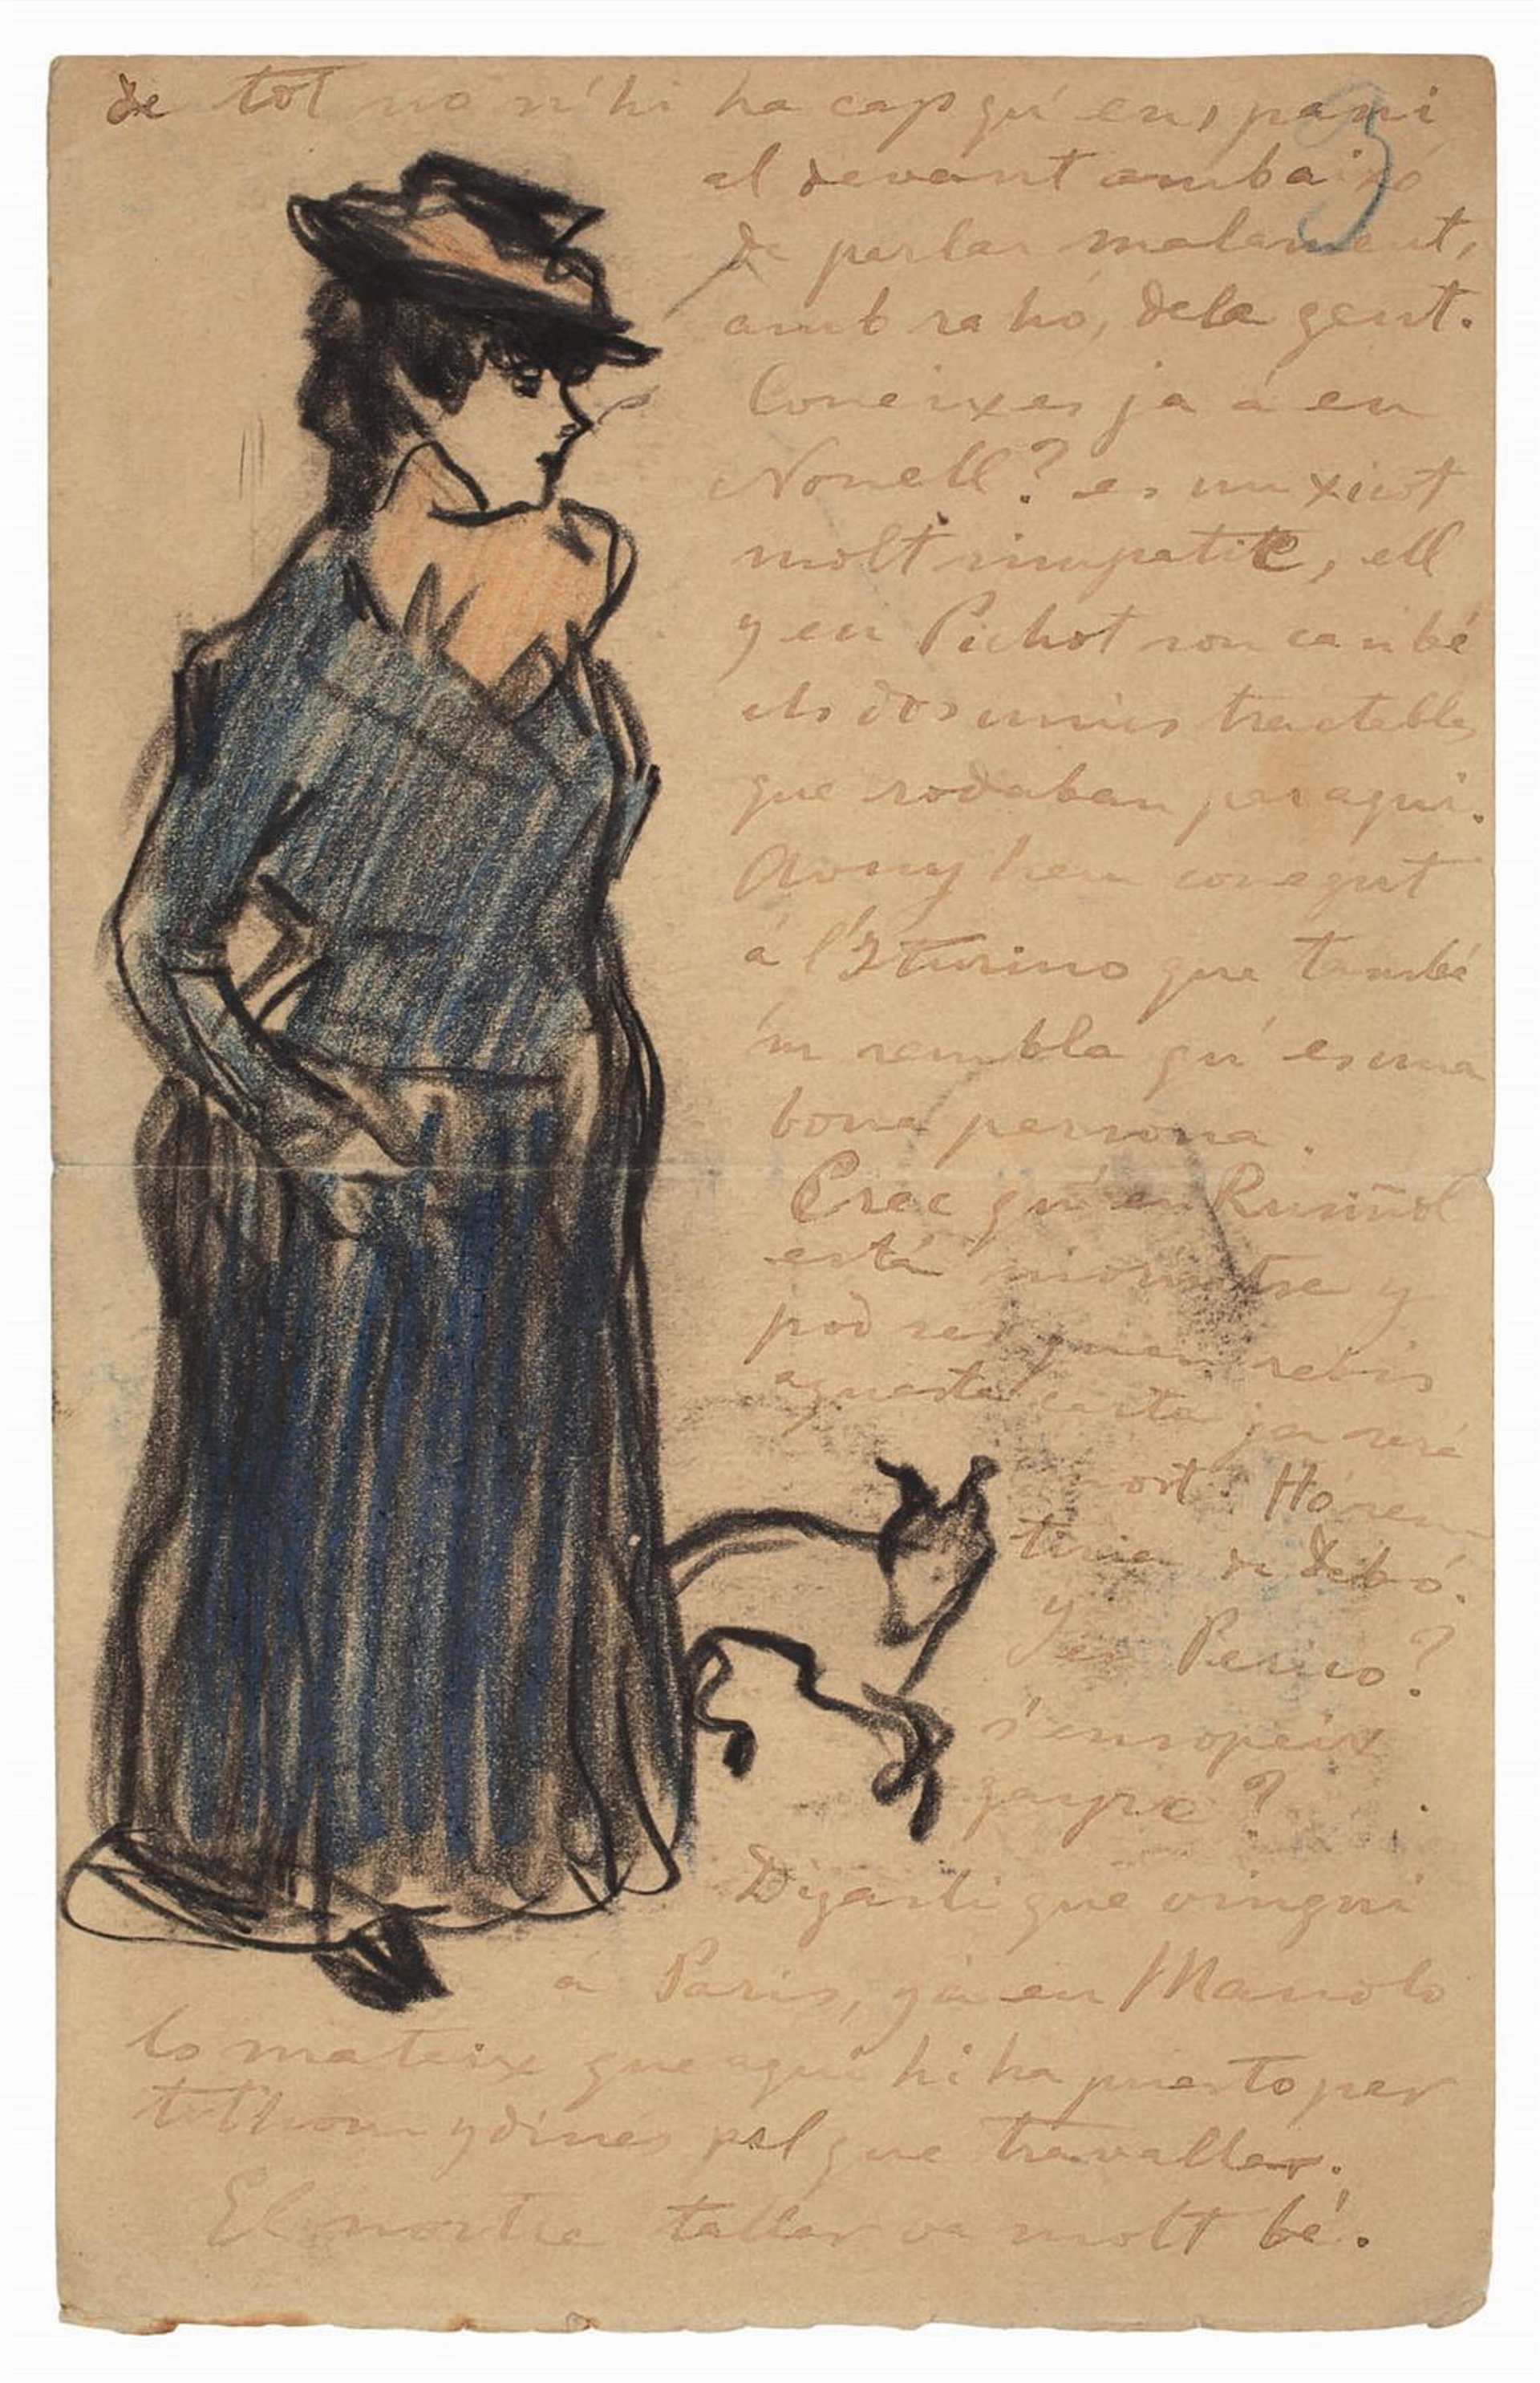 de tot no n'hi ha cap qu'ens pari
3
al devant amb aixó
de parlar malament,
amb rahó, dela gent.
Coneixes ja á en
Nonell? es un xicot
molt simpatic, ell
y en Pichot son canbé
els dos unics tractables
que rodaban per aqui.
Avuy hem conegut
á l'Iturino que també
'm sembla qu' es una
bona persona.
Crec qu' en Rusiñol
está y
pod ser quan rebis
aquesta carta ja será
mort. Ho
de debó.
y en Perico?
s'europeix
gayre?
Digasli que vingui
a Paris, y á en Manolo
lo mateix que aqui hi ha puesto per
tothom y dines pel que travalla.
El nostre taller va molt bé.